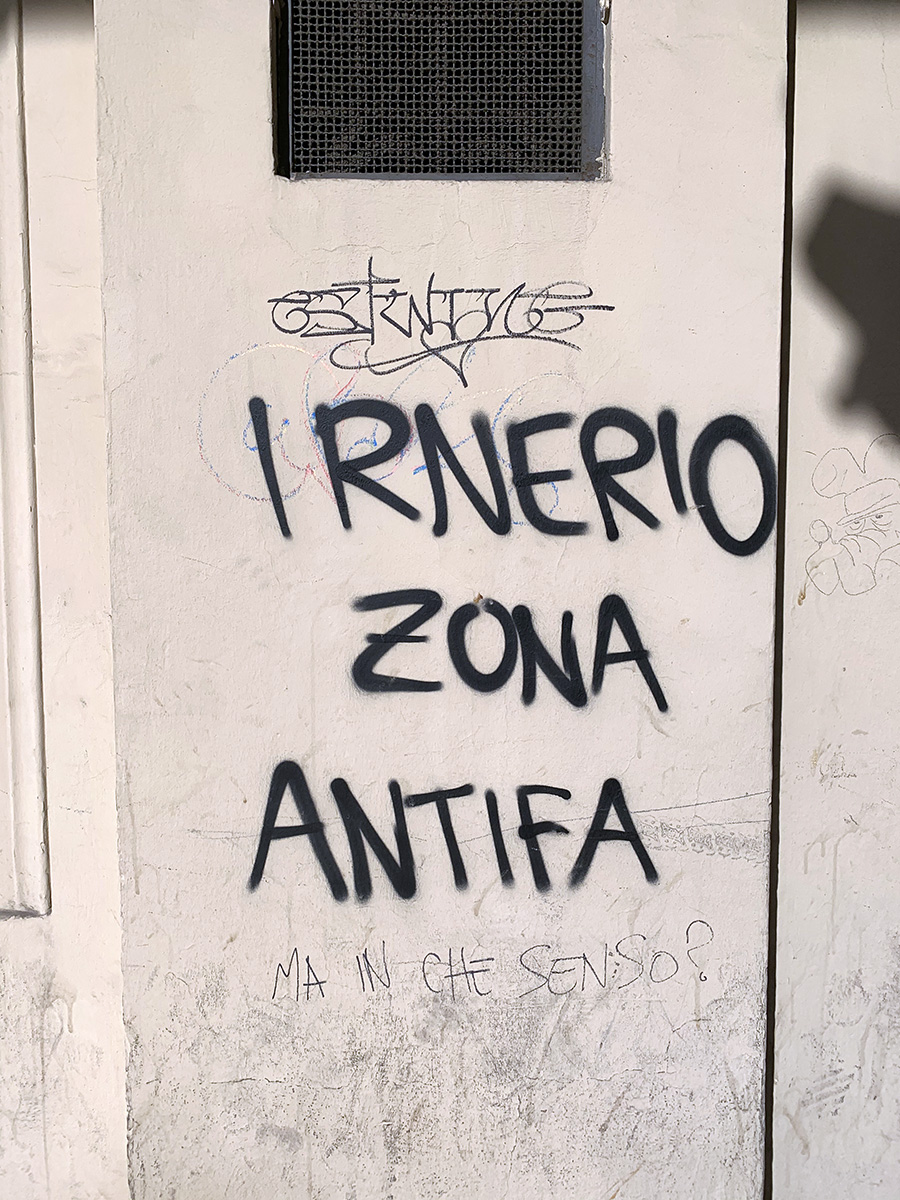 IRNERIO
ZONA
ANTIFA
MA IN CHE SENSO?